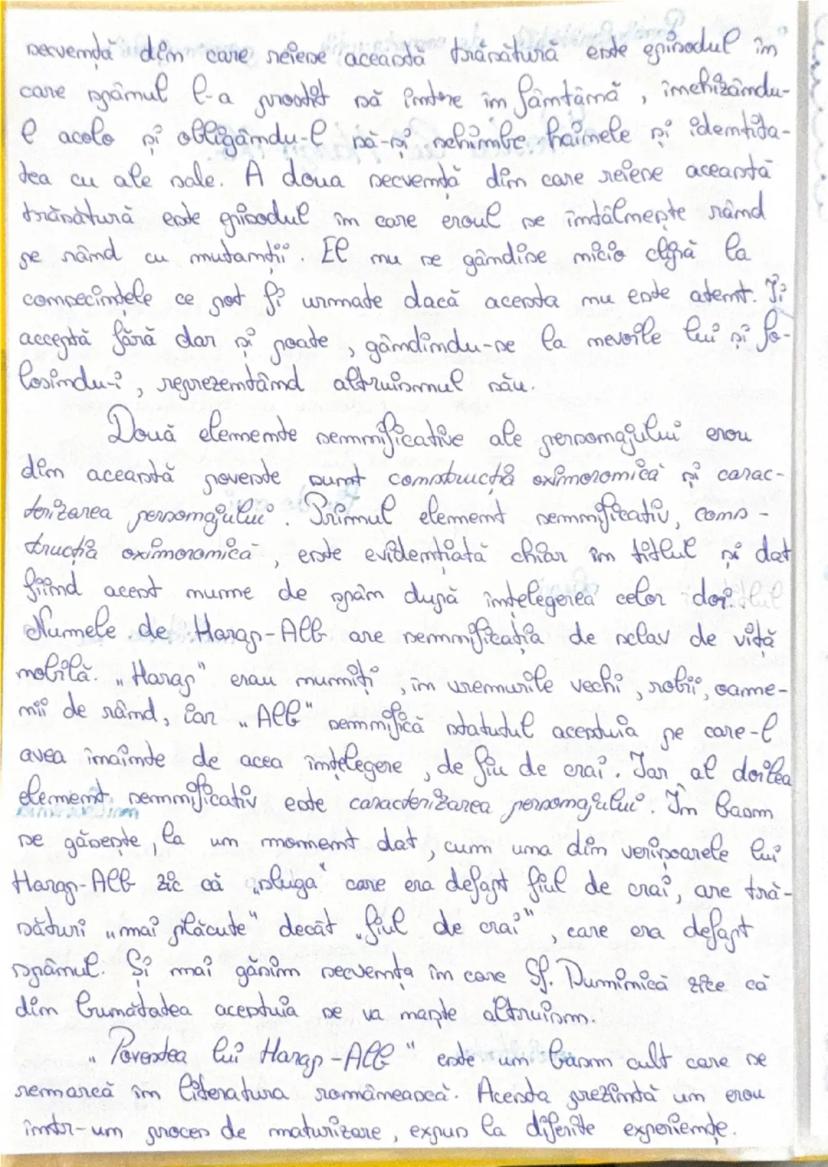 secvență din care reiese această trăsătură este episodul în
care spânul l-a prostit să intre în fântână, închizându-
l acolo și obligându-l să-și schimbe hainele și identita-
tea cu ale sale. A doua secvență din care reiese această
trăsătură este episodul în care eroul se întâlmește rând
pe rând cu mutanții. El nu se gândise nicio clipă la
consecințele ce pot fi urmate dacă acesta nu este atent. Îi
acceptă fără dar și poate, gândindu-se la nevoile lui și fo-
losindu-i, reprezentând altruismul său.
Două elemente semnificative ale personajului erou
din această poveste sunt construcția oximoronică și carac-
terizarea personajului. Primul element semnificativ, cons-
trucția oximoronică, este evidențiată chiar în titlul și dat
fiind acest nume de spân după înțelegerea celor doi.
Numele de Harap-Alb are semnificația de sclav de viță
nobilă. „Harap" erau numiți, în vremurile vechi, robii, oame-
nii de rând, iar „Alb" semnifică statutul acestuia pe care-l
avea înainte de acea înțelegere, de fiu de crai. Iar al doilea
element semnificativ este caracterizarea personajului. În basm
se găsește, la un moment dat, cum una din verișoarele lui
Harap-Alb zic că „sluga" care era defapt fiul de crai, are tră-
sături „mai plăcute" decât „fiul de crai", care era defapt
spânul. Și mai găsim secvența în care Sf. Duminică zice că
din bunătatea acestuia se va naște altruism.
„Povestea lui Harap-Alb" este un basm cult care se
remarcă în literatura românească. Acesta prezintă un erou
într-un proces de maturizare, expus la diferite experiențe.